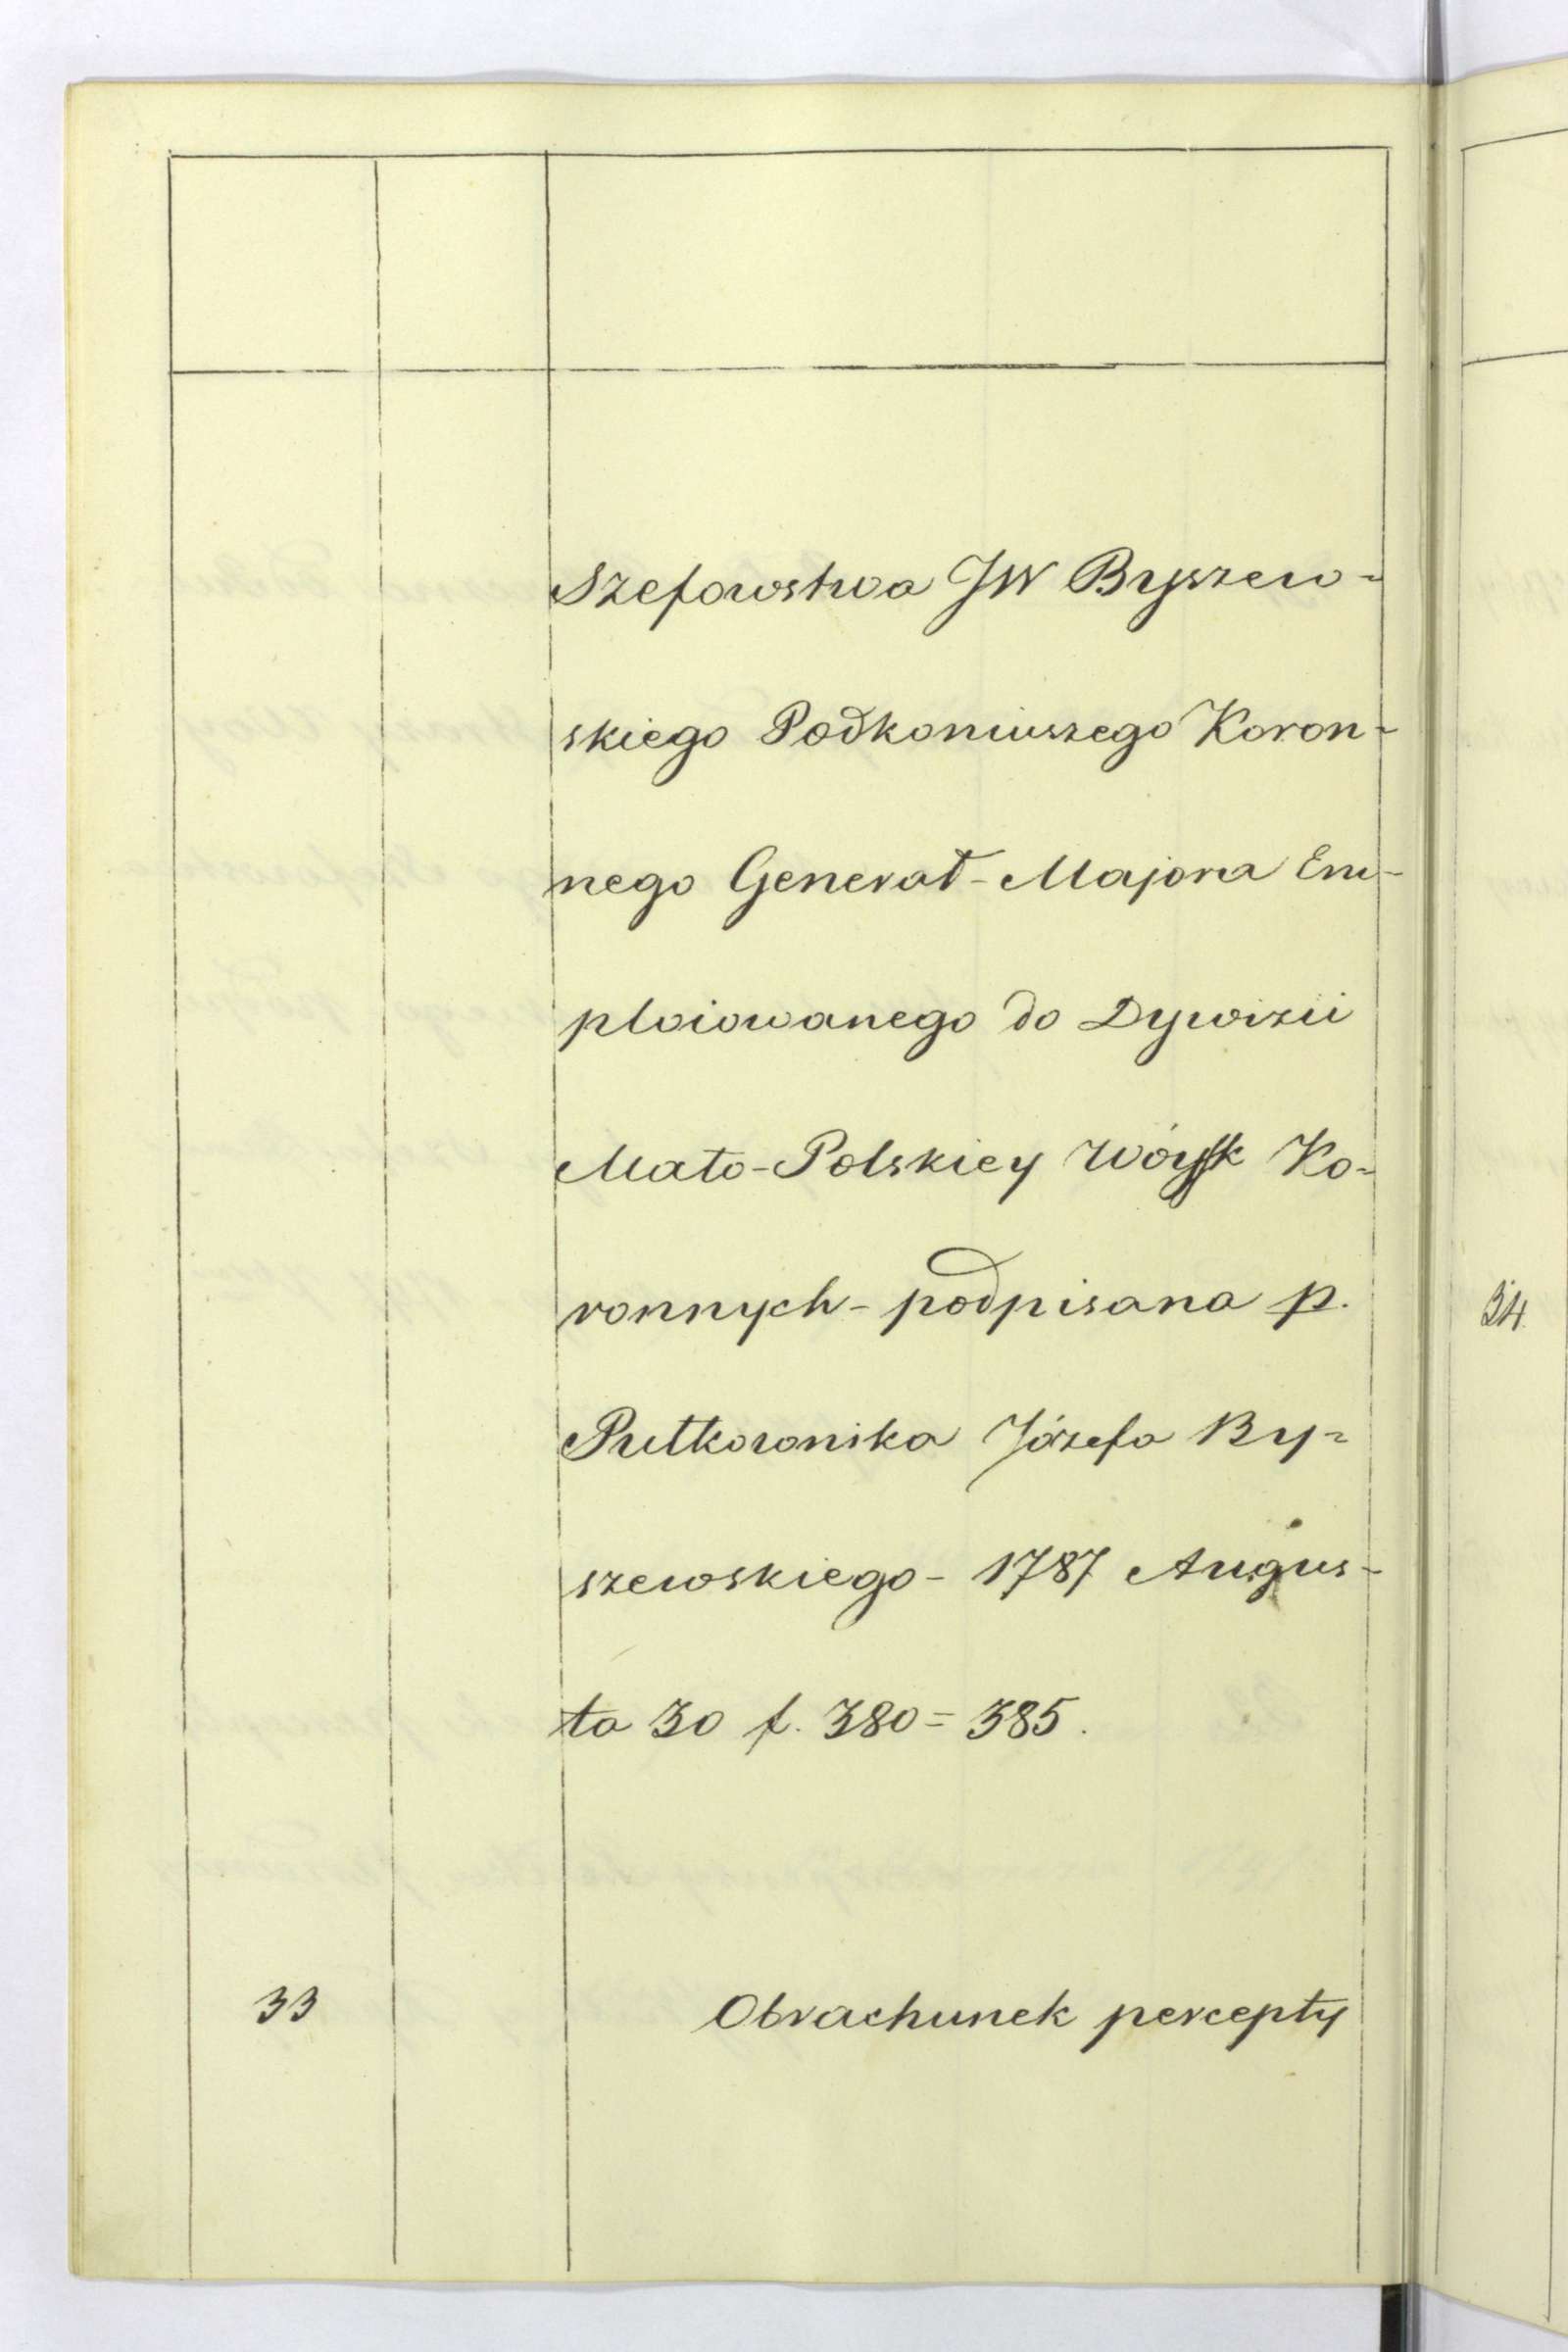 Szefowstwa JW Byszew=
skiego Podkoniuszego Koron=
nego Generał-Majora Em-
ploiowanego do Dywizii
Mało-Polskiey Wóysk Ko=
ronnych - podpisana p.
Pułkownika Józefa By=
szewskiego - 1787 Augus-
ta 30 f. 380 = 385.
33 Obrachunek percepty
34